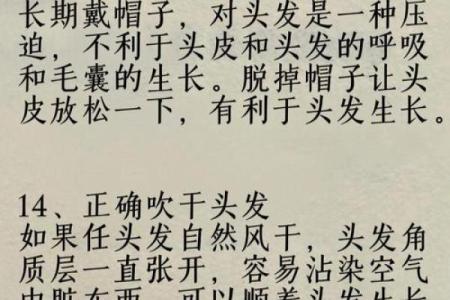 长期戴帽子，对头发是一种压
迫，不利于头皮和头发的呼吸
和毛囊的生长。脱掉帽子让头
皮放松一下，有利于头发生长。
14、正确吹干头发
如果任头发自然风干，头发角
质层一直张开，容易沾染空气
中脏东西，可以顺着头发生长